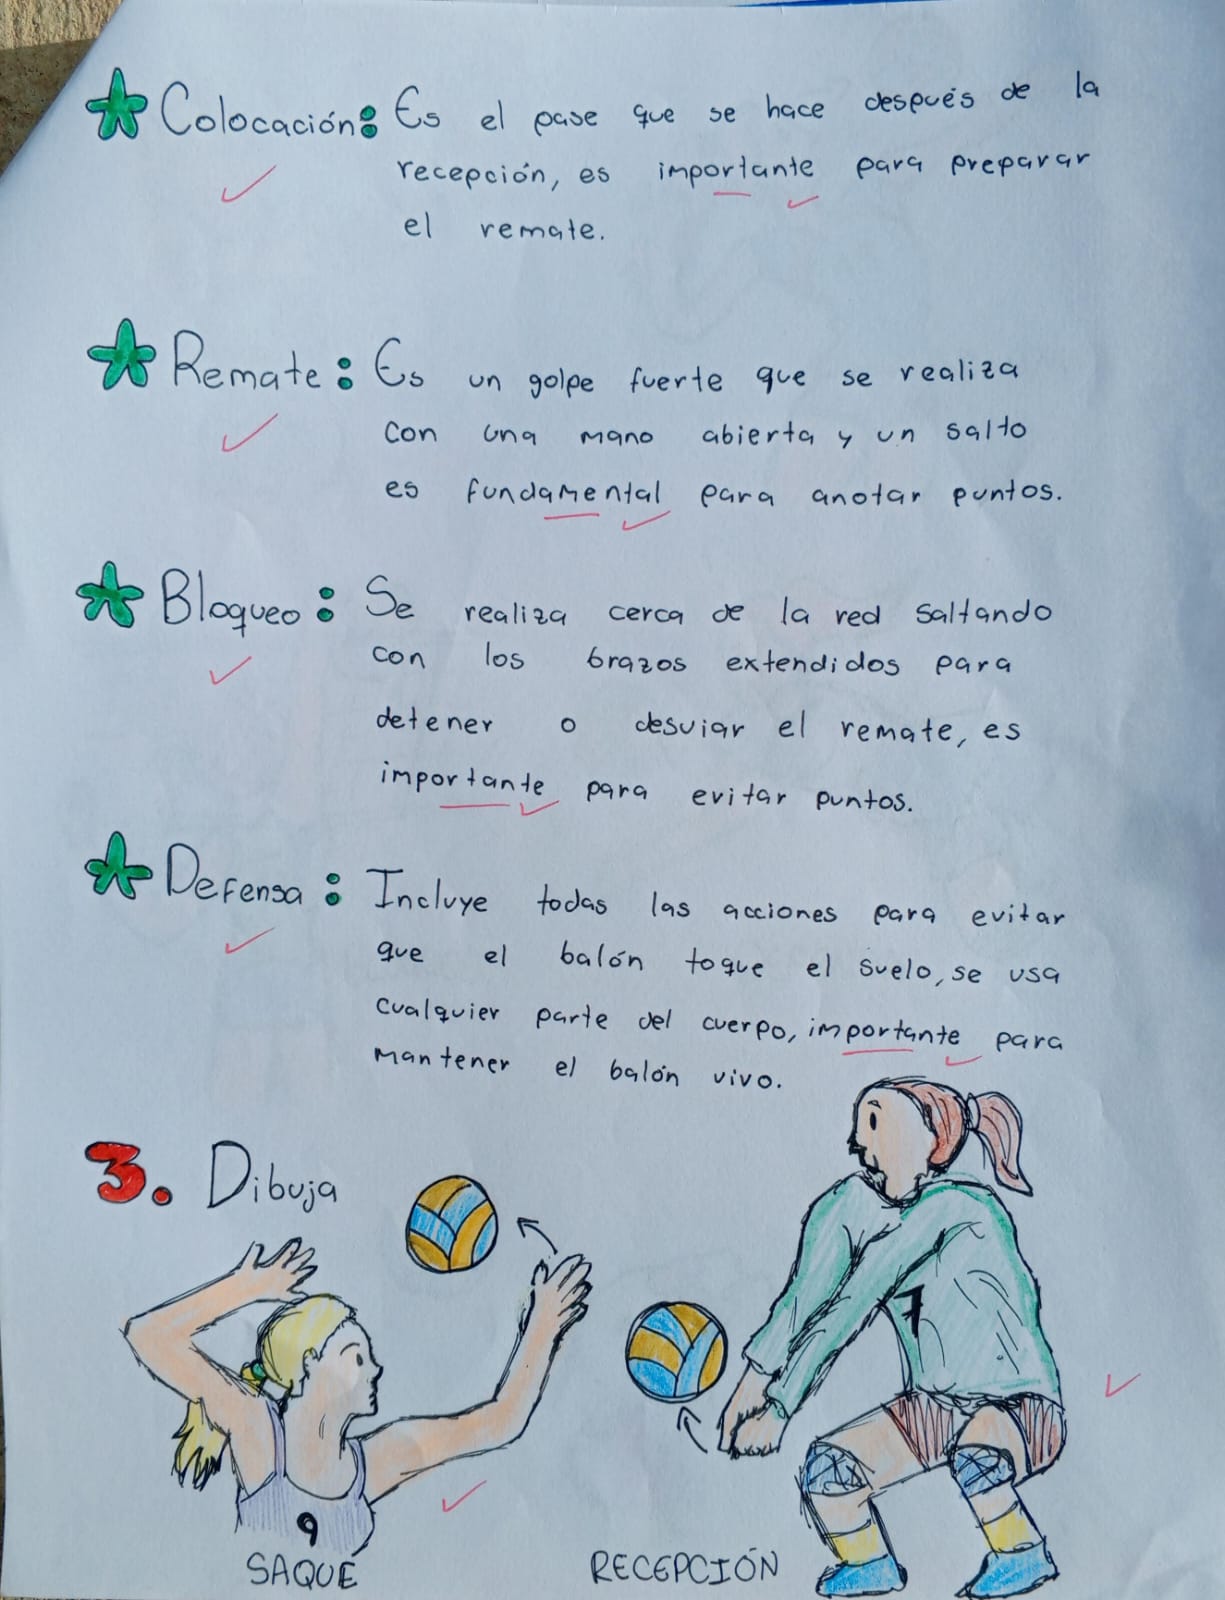 Colocación: Es el pase que se hace después de la
recepción, es importante para preparar
el remate.
Remate: Es un golpe fuerte que se realiza
con una mano abierta y un salto
es fundamental para anotar puntos.
Bloqueo: Se realiza cerca de la red saltando
con los brazos extendidos para
detener o desviar el remate, es
importante para evitar puntos.
Defensa: Incluye todas las acciones para evitar
que el balón toque el suelo, se usa
cualquier parte del cuerpo, importante para
mantener el balón vivo.
3. Dibuja
7
9
SAQUE
RECEPCIÓN